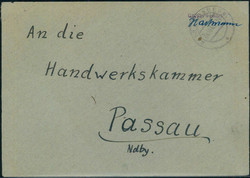 An die
Handwerkskammer
Passau
Ndby.